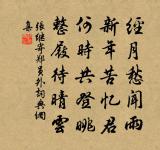 經月愁聞雨
新年苦憶君
何時共登眺
整屐待晴雲
張繼寄鄭員外詞典網
集